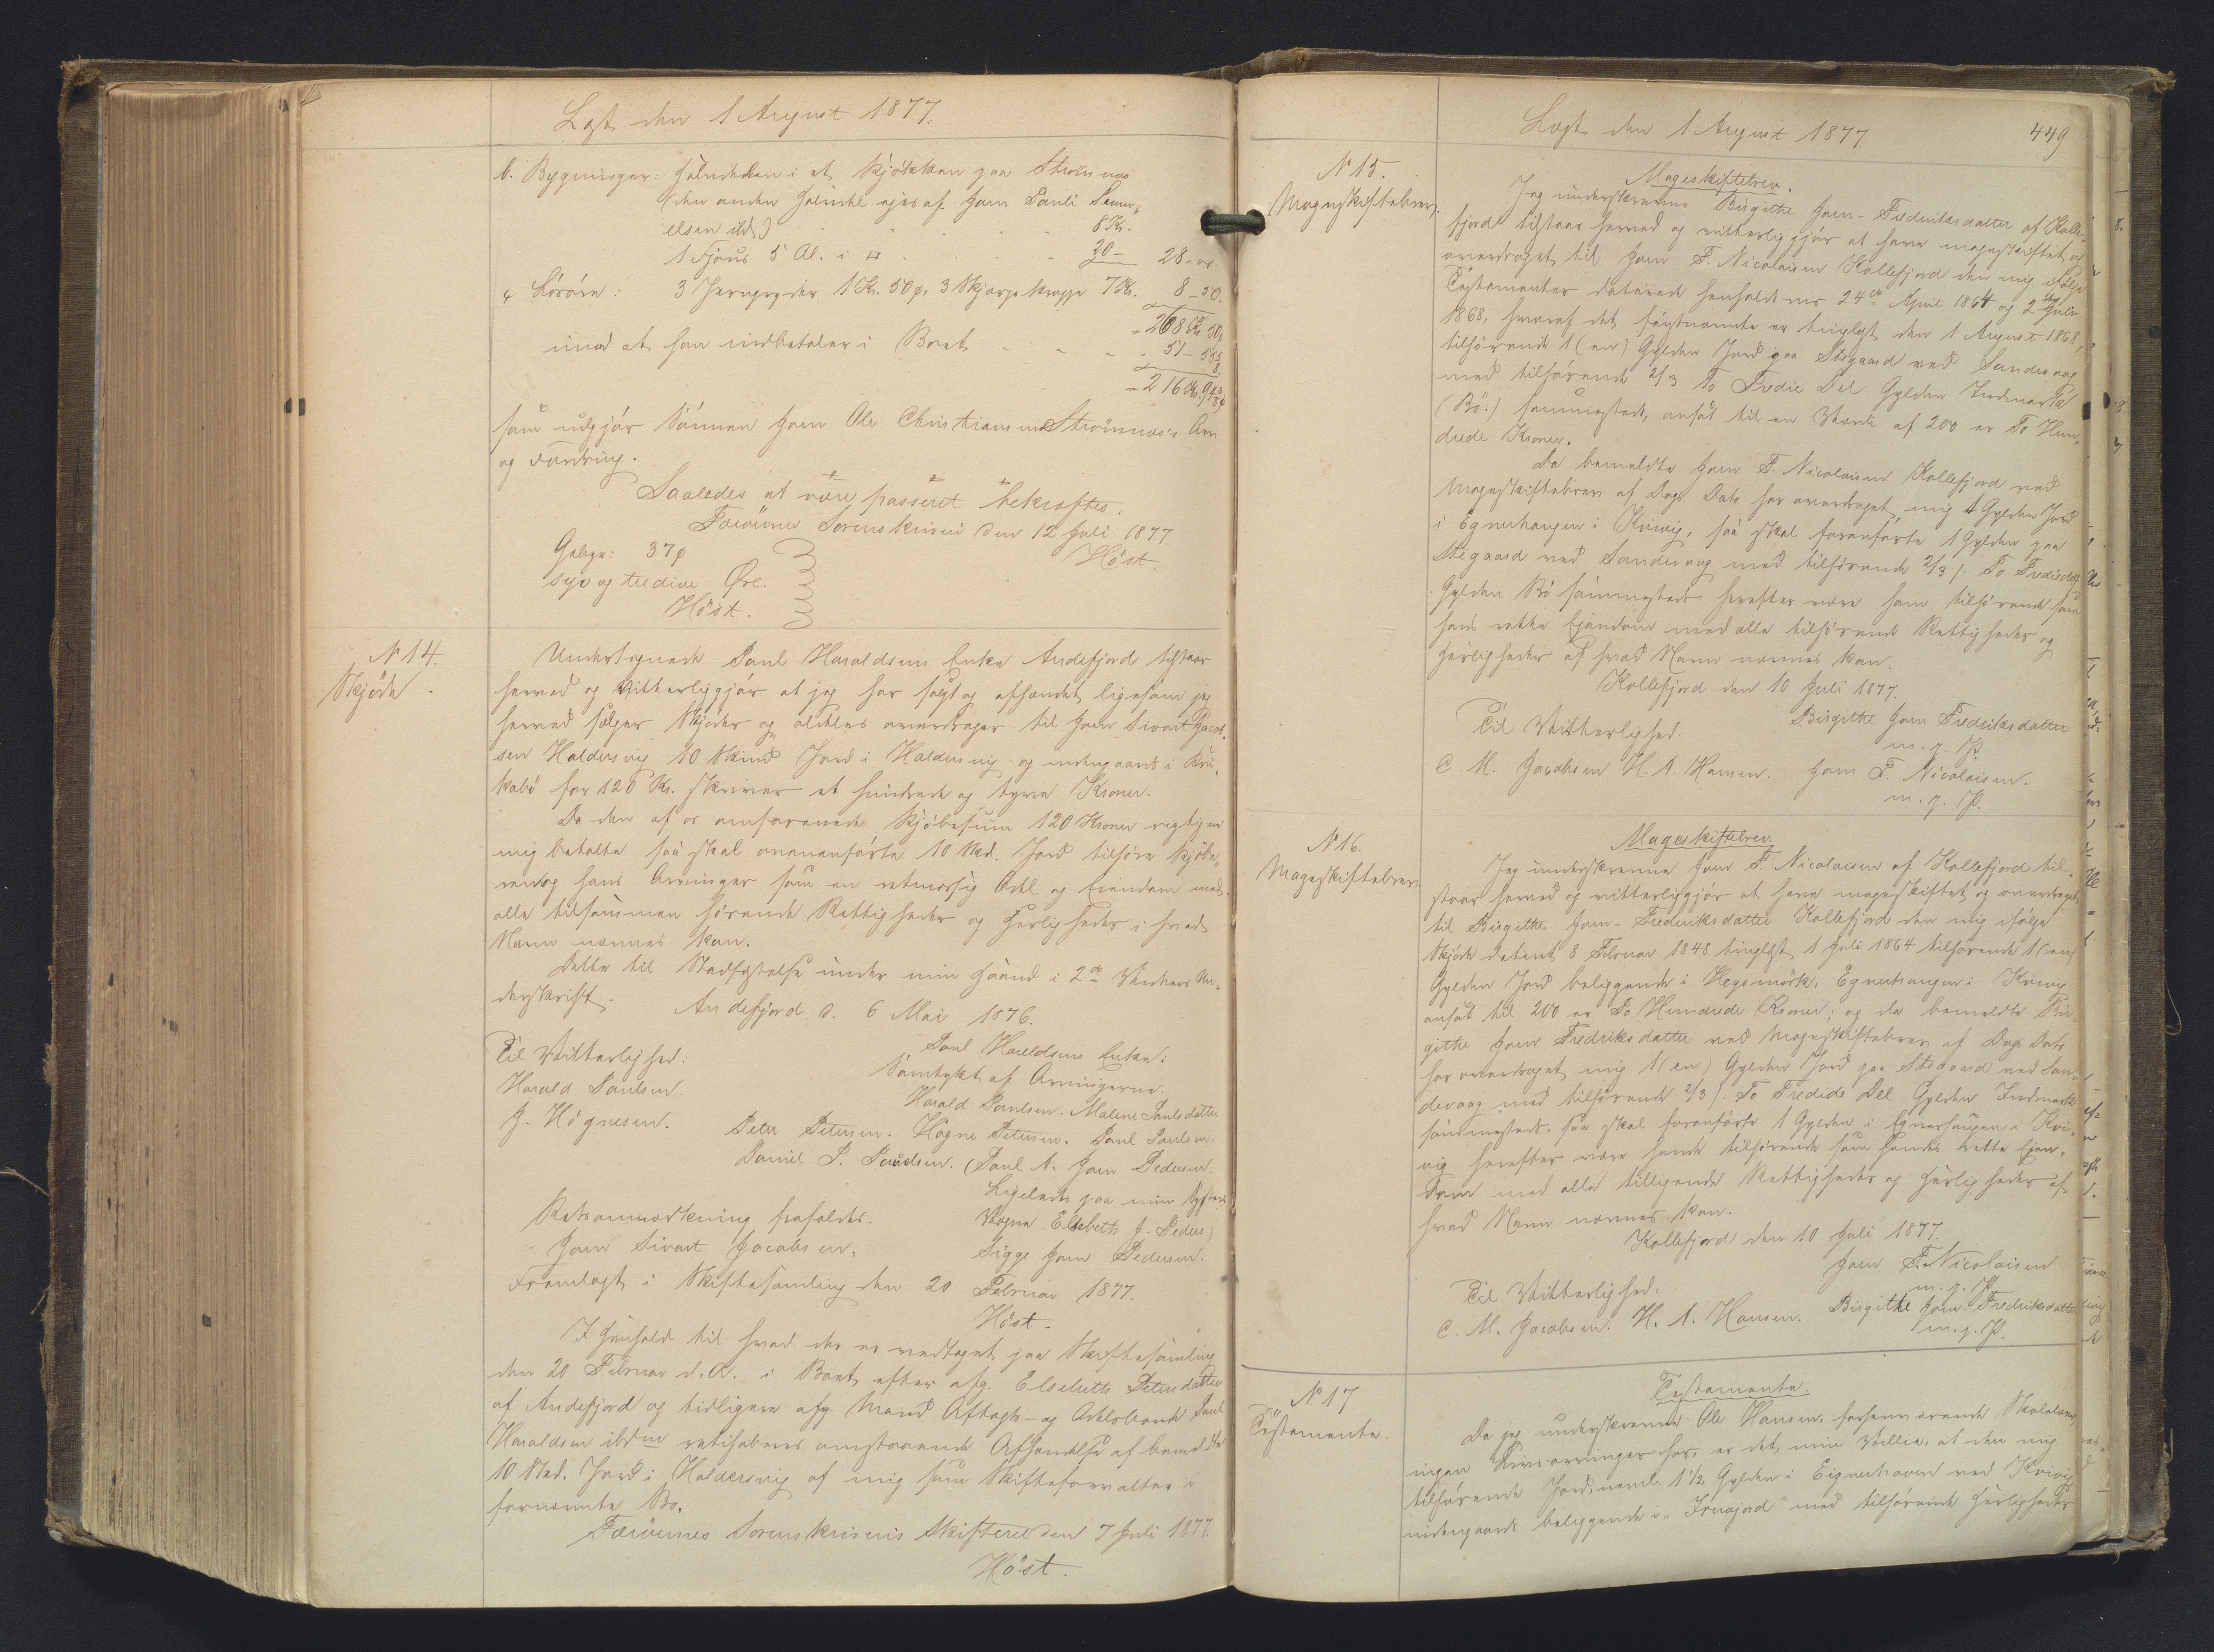 Lagt den 1 August 1877.
b. Bygninger: Halvdelen i et Kjökken paa Strömnæs
(den anden Halvdel ejes af Joen Pouli Samu-
elsen ibd.) 8 Kr.
1 Hjaus 5 Al. i □ 20 — 28 - "
c Lösöre: 3 Jerngryder 1 Kr. 50 ø, 3 Skjæpp 7 Kr. 8 - 50.
268 Kr 50
imod at han indbetaler i Boet 51 - 55
= 216 Kr. 9
som udgjör Sönnen Joen Ole Christiansen Strömnæs's Arv
og Fordring.
Saaledes at være passeret bekræftes.
Færöernes Sorenskriveri den 12 Juli 1877.
Höst.
Gebyr: 37 ø
syv og tredive Øre.
Höst.
N 14.
Skjöde.
Undertegnede Paul Haraldsens Enke Andefjord tilstaar
herved og vitterliggjör at jeg har solgt og afhændet ligesom jeg
herved sælger skjöder og aldeles overdrager til Joen Sivart Jacob-
sen Haldersvig 10 Skind Jord i Haldersvig og indengaards i Kru-
kabö for 120 Kr. skriver et hundrede og tyve Kroner.
Da den af os omforenede Kjöbesum 120 Kroner rigtig er
mig betalte saa skal ovenanförte 10 Skd. Jord tilhöre Kjöbe-
ren og hans Arvinger som en retmæssig Odel og Eiendom med
alle tilsammen hörende Rettigheder og Herligheder i hvad
Navn nævnes kan.
Dette til Stadfæstelse under min Haand i 2de Vidners Un-
derskrift.
Andefjord d. 6 Mai 1876.
Til Vitterlighed:
Harald Paulsen.
J. Högnesen.
Paul Haraldsens Enke:
Samtykt af Arvingerne
Harald Paulsen. Malene Paulsdatter
Peter Petersen. Högne Petersen. Paul Paulsen.
Daniel P. Poulsen. (Paul A. Joen Pedersen.
Ligeledes paa min Systers
Vegne Elsebeth J. Peders)
Sigge Joen Pedersen.
Retsanmærkning frafaldes.
Joen Sivart Jacobsen.
Fremlagt i Skiftesamling den 20 Februar 1877.
Höst.
I Henhold til hvad der er vedtaget paa Skiftesamling
den 20 Februar d. A. i Boet efter afg. Elsebeth Petersdatter
af Andefjord og tidligere afg. Mand Aftægts- og Odelsbonde Paul
Haraldsen ibdm ratihaberes omstaaende Afhændelse af bemeldte
10 Skd. Jord i Haldersvig af mig som Skifteforvalter i
fornævnte Bo.
Færöernes Sorenskriveris Skifteret den 7 Juli 1877.
Höst.
Lagt den 1 August 1877
449
N 15.
Mageskiftebrev.
Mageskiftebrev.
Jeg underskrevne Birgithe Joen-Fredriksdatter af Kolle-
fjord tilstaar herved og vitterliggjör at have mageskiftet og
overdraget til Joen F. Nicolaisen Kollefjord den mig ifölge
Testamenter daterede henholdsvis 24de April 1864 og 2den Juli
1868, hvoraf det sagtnævnte er tinglyst den 1 August 1868,
tilhörende 1 (en) Gylden Jord paa Stegaard ved Sandevaag
med tilhörende 2/3 To Tredie Del Gylden Indmark
(Bö:) sammesteds, ansat til en Værdi af 200 er To Hun-
drede Kroner.
Da bemeldte Joen F. Nicolaisen Kollefjord ved
Mageskiftebrev af Dags Dato har overdraget mig 1 Gylden Jord
i Egnerhaugen i Kvivig, saa skal foranförte 1 Gylden paa
Stegaard ved Sandevaag med tilhörende 2/3 /. To Trediedel
Gylden Bö sammesteds herefter være ham tilhörende som
hans rette Ejendom med alle tilhörende Rettigheder og
Herligheder af hvad Navn nævnes kan.
Kollefjord den 10 Juli 1877.
Birgithe Joen Fredriksdatter
m. f. P.
Til Vitterlighed.
C. M. Jacobsen H. A. Hansen.
Joen F. Nicolaisen.
m. f. P.
N 16.
Mageskiftebrev
Mageskiftebrev
Jeg underskrevne Joen F. Nicolaisen af Kollefjord til-
staar herved og vitterliggjör at have mageskiftet og overdraget
til Birgithe Joen-Fredriksdatter Kollefjord den mig ifölge
Skjöde dateret 8 Februar 1848 tinglæst 1 Juli 1864 tilhörende 1 (en)
Gylden Jord beliggende i Hegsmörk, Egnerhaugen i Kvivig
ansat til 200 er To Hundrede Kroner; og da bemeldte Bir-
githe Joen Fredriksdatter ved Mageskiftebrev af Dags Dato
har overdraget mig 1 (en) Gylden Jord paa Stegaard ved San-
devaag med tilhörende 2/3 /. To Tredie Del Gylden Indmark
sammesteds, saa skal foranförte 1 Gylden i Egnerhaugen i Kvi-
vig herefter være hende tilhörende som hendes rette Ejen-
dom med alle tilliggende Rettigheder og Herligheder af
hvad Navn nævnes kan.
Kollefjord den 10 Juli 1877.
Joen F. Nicolaisen
m. f. P.
Til Vitterlighed.
C. M. Jacobsen. H. A. Hansen.
Birgithe Joen Fredriksdatter
m. f. P.
N 17.
Testamente.
Testamente.
Da jeg underskrevne Ole Hansen, forhenværende Skolelærer,
ingen Livsarvinger har, er det min Villie, at den mig
tilhörende Jord, neml. 1 1/2 Gylden i Eignerhaven ved Kvivig
indengaards beliggende i "Trvajord" med tilhörende Herligheder